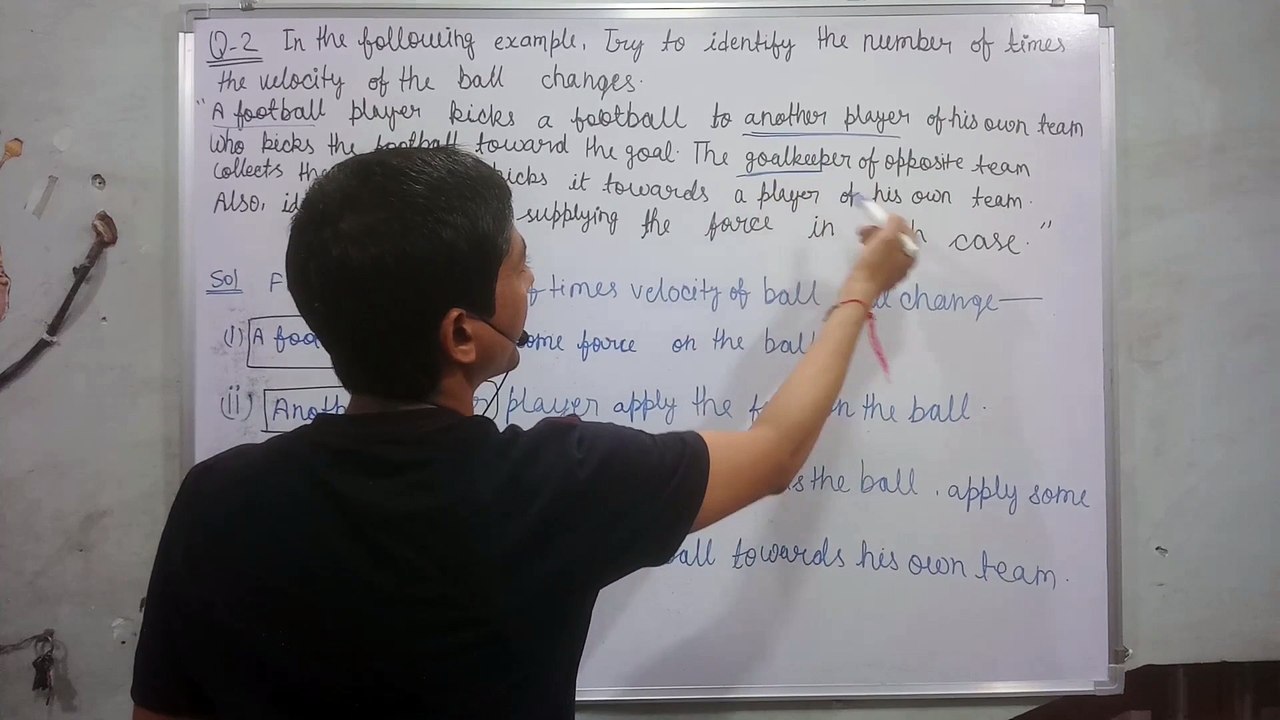 Q-2 In the following example, Try to identify the number of times
the velocity of the ball changes.
"A football player kicks a football to another player of his own team
who kicks the football toward the goal. The goalkeeper of opposite team
collects the kicks it towards a player of his own team.
Also, supplying the force in case."
Sol times velocity of ball change—
(i) A some force on the ball
(ii) player apply the on the ball.
the ball, apply some
ball towards his own team.